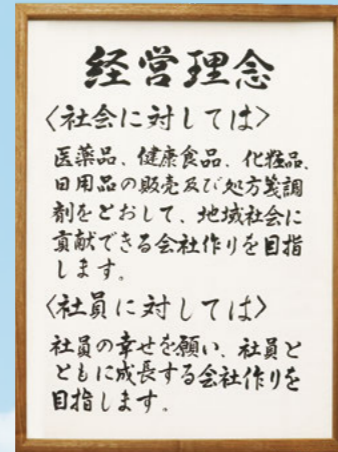 経営理念
〈社会に対しては〉
医薬品、健康食品、化粧品、
日用品の販売及び処方箋調
剤をとおして、地域社会に
貢献できる会社作りを目指
します。
〈社員に対しては〉
社員の幸せを願い、社員と
ともに成長する会社作りを
目指します。